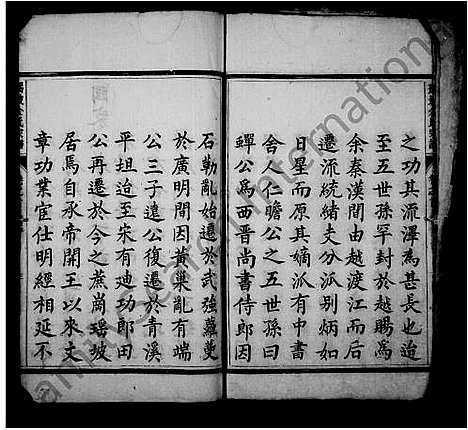 之功其流澤為甚長也迨
至五世孫罕封於越賜為
余秦漢間由越渡江而后
遷流統緒支分派别炳如
日星而原其嫡派有中書
舍人仁瞻公之五世孫曰
蟬公為西晋尚書侍郎因
石勒亂始遷於武強蘿蔓
於廣明間因黄巢亂有端
公三子遠公復遷於青溪
平坦迨至宋有迪功郎田
公再遷於今之蔗崗瑶坡
居焉自承帝開王以來文
章功業宦仕明經相延不